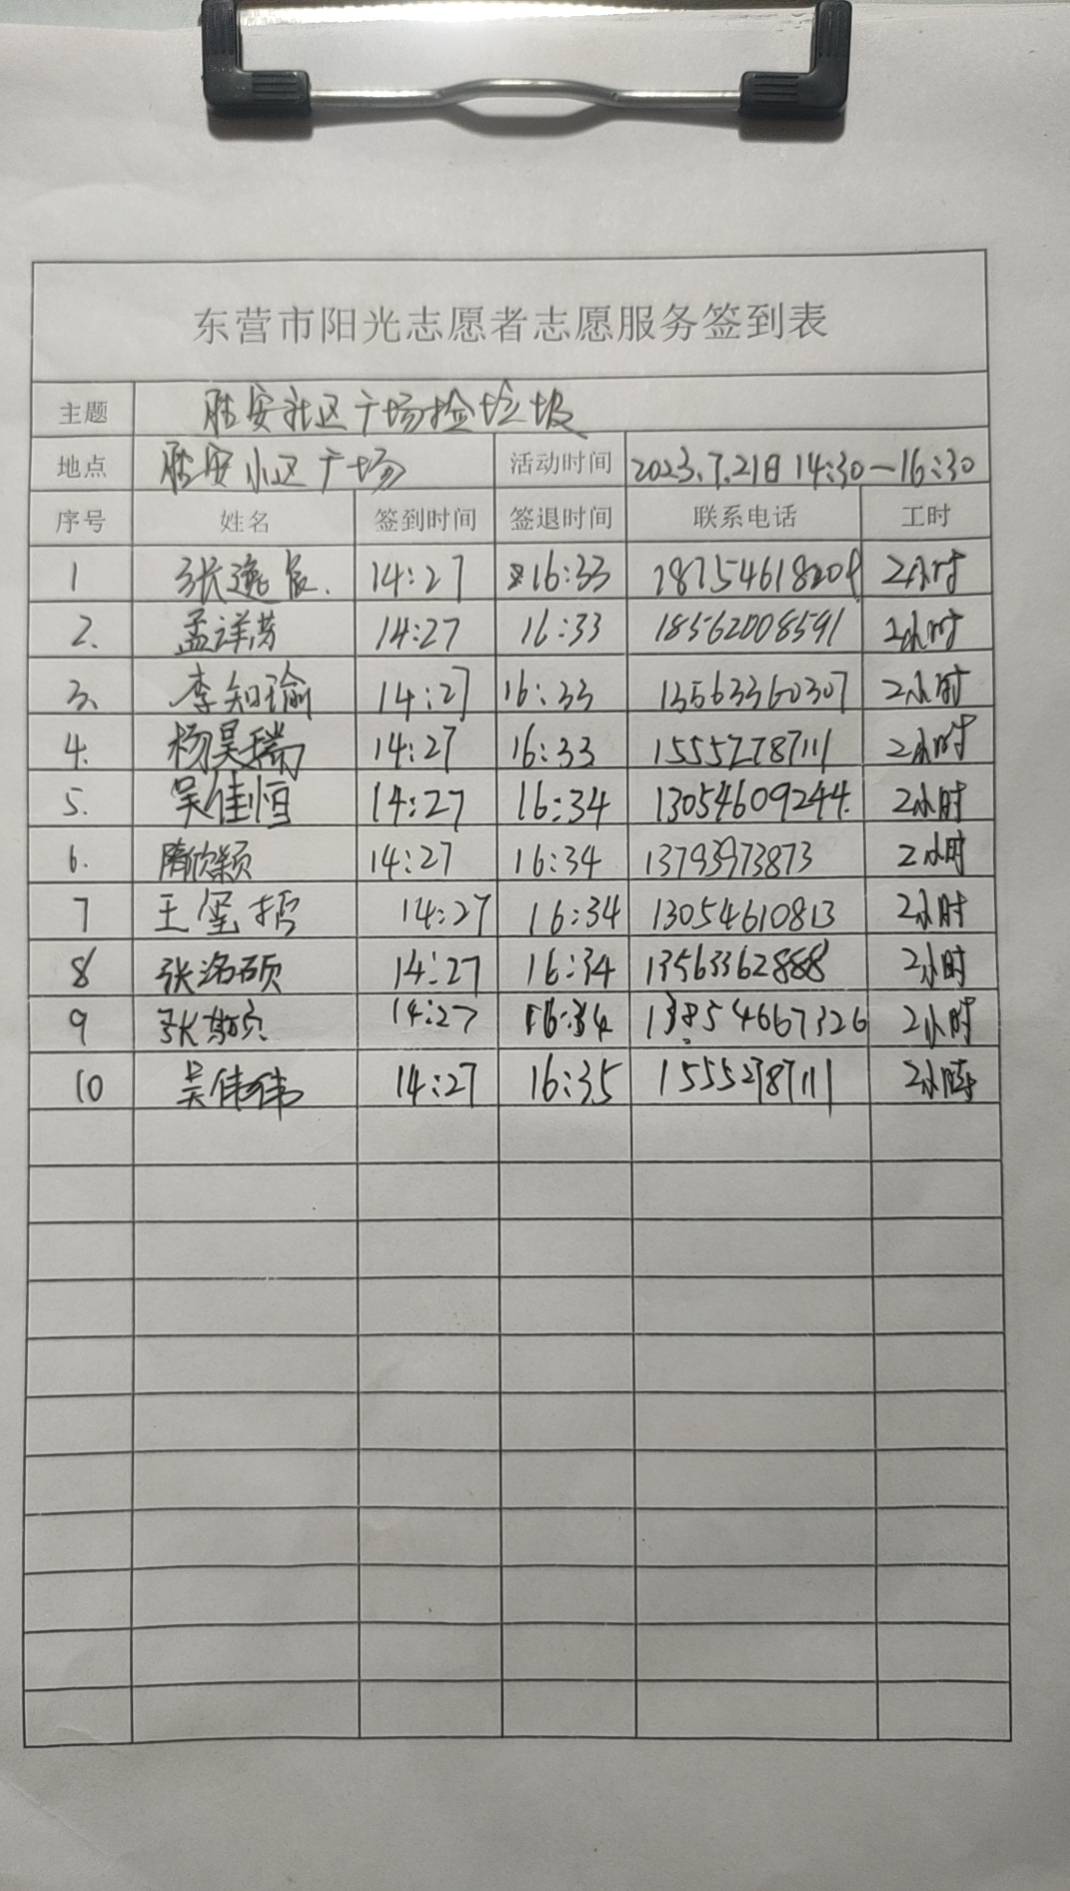 东营市阳光志愿者志愿服务签到表
主题 胜安社区广场捡垃圾
地点 胜安小区广场 活动时间 2023.7.21日 14:30—16:30
序号 姓名 签到时间 签退时间 联系电话 工时
1 张逸辰. 14:27 16:33 2小时
2. 孟祥芳 14:27 16:33 18562008591 2小时
3. 李知瑜 14:27 16:33 13563360307 2小时
4. 杨昊瑞 14:27 16:33 15552787111 2小时
5. 吴佳恒 14:27 16:34 13054609244. 2小时
6. 隋欣颖 14:27 16:34 13793973873 2小时
7 王玺哲 14:27 16:34 13054610813 2小时
8 张洺硕 14:27 16:34 13563362888 2小时
9 14:27 16:34 2小时
10 吴伟伟 14:27 16:35 15552787111 2小时